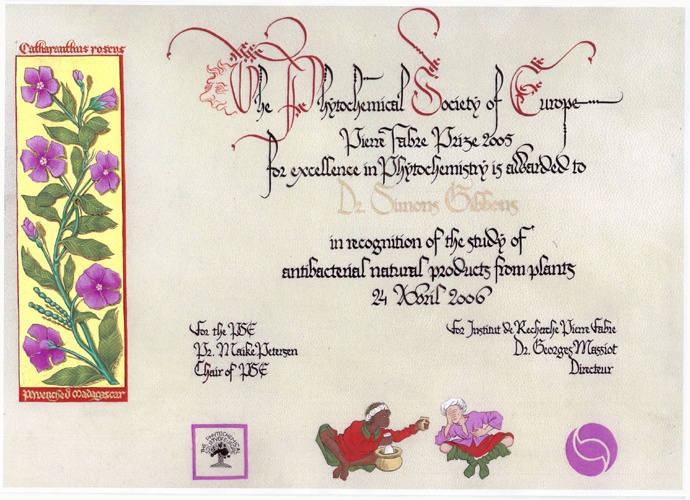 Catharanthus roseus
The Phytochemical Society of Europe
Pierre Fabre Prize 2005
for excellence in Phytochemistry is awarded to
Dr. Simons Gibbons
in recognition of the study of
antibacterial natural products from plants
24 April 2006
For the PSE
Pr. Maike Petersen
Chair of PSE
For Institut de Recherche Pierre Fabre
Dr. Georges Massiot
Directeur
Pervenche d Madagascar
THE PHYTOCHEMICAL SOCIETY OF EUROPE